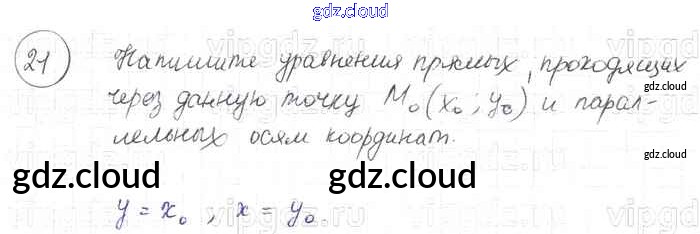 gdz.cloud
21 Напишите уравнения прямых, проходящих
через данную точку M₀(x₀; y₀) и парал-
лельных осям координат.
gdz.cloud
gdz.cloud gdz.cloud
y = x₀, x = y₀.
gdz.cloud